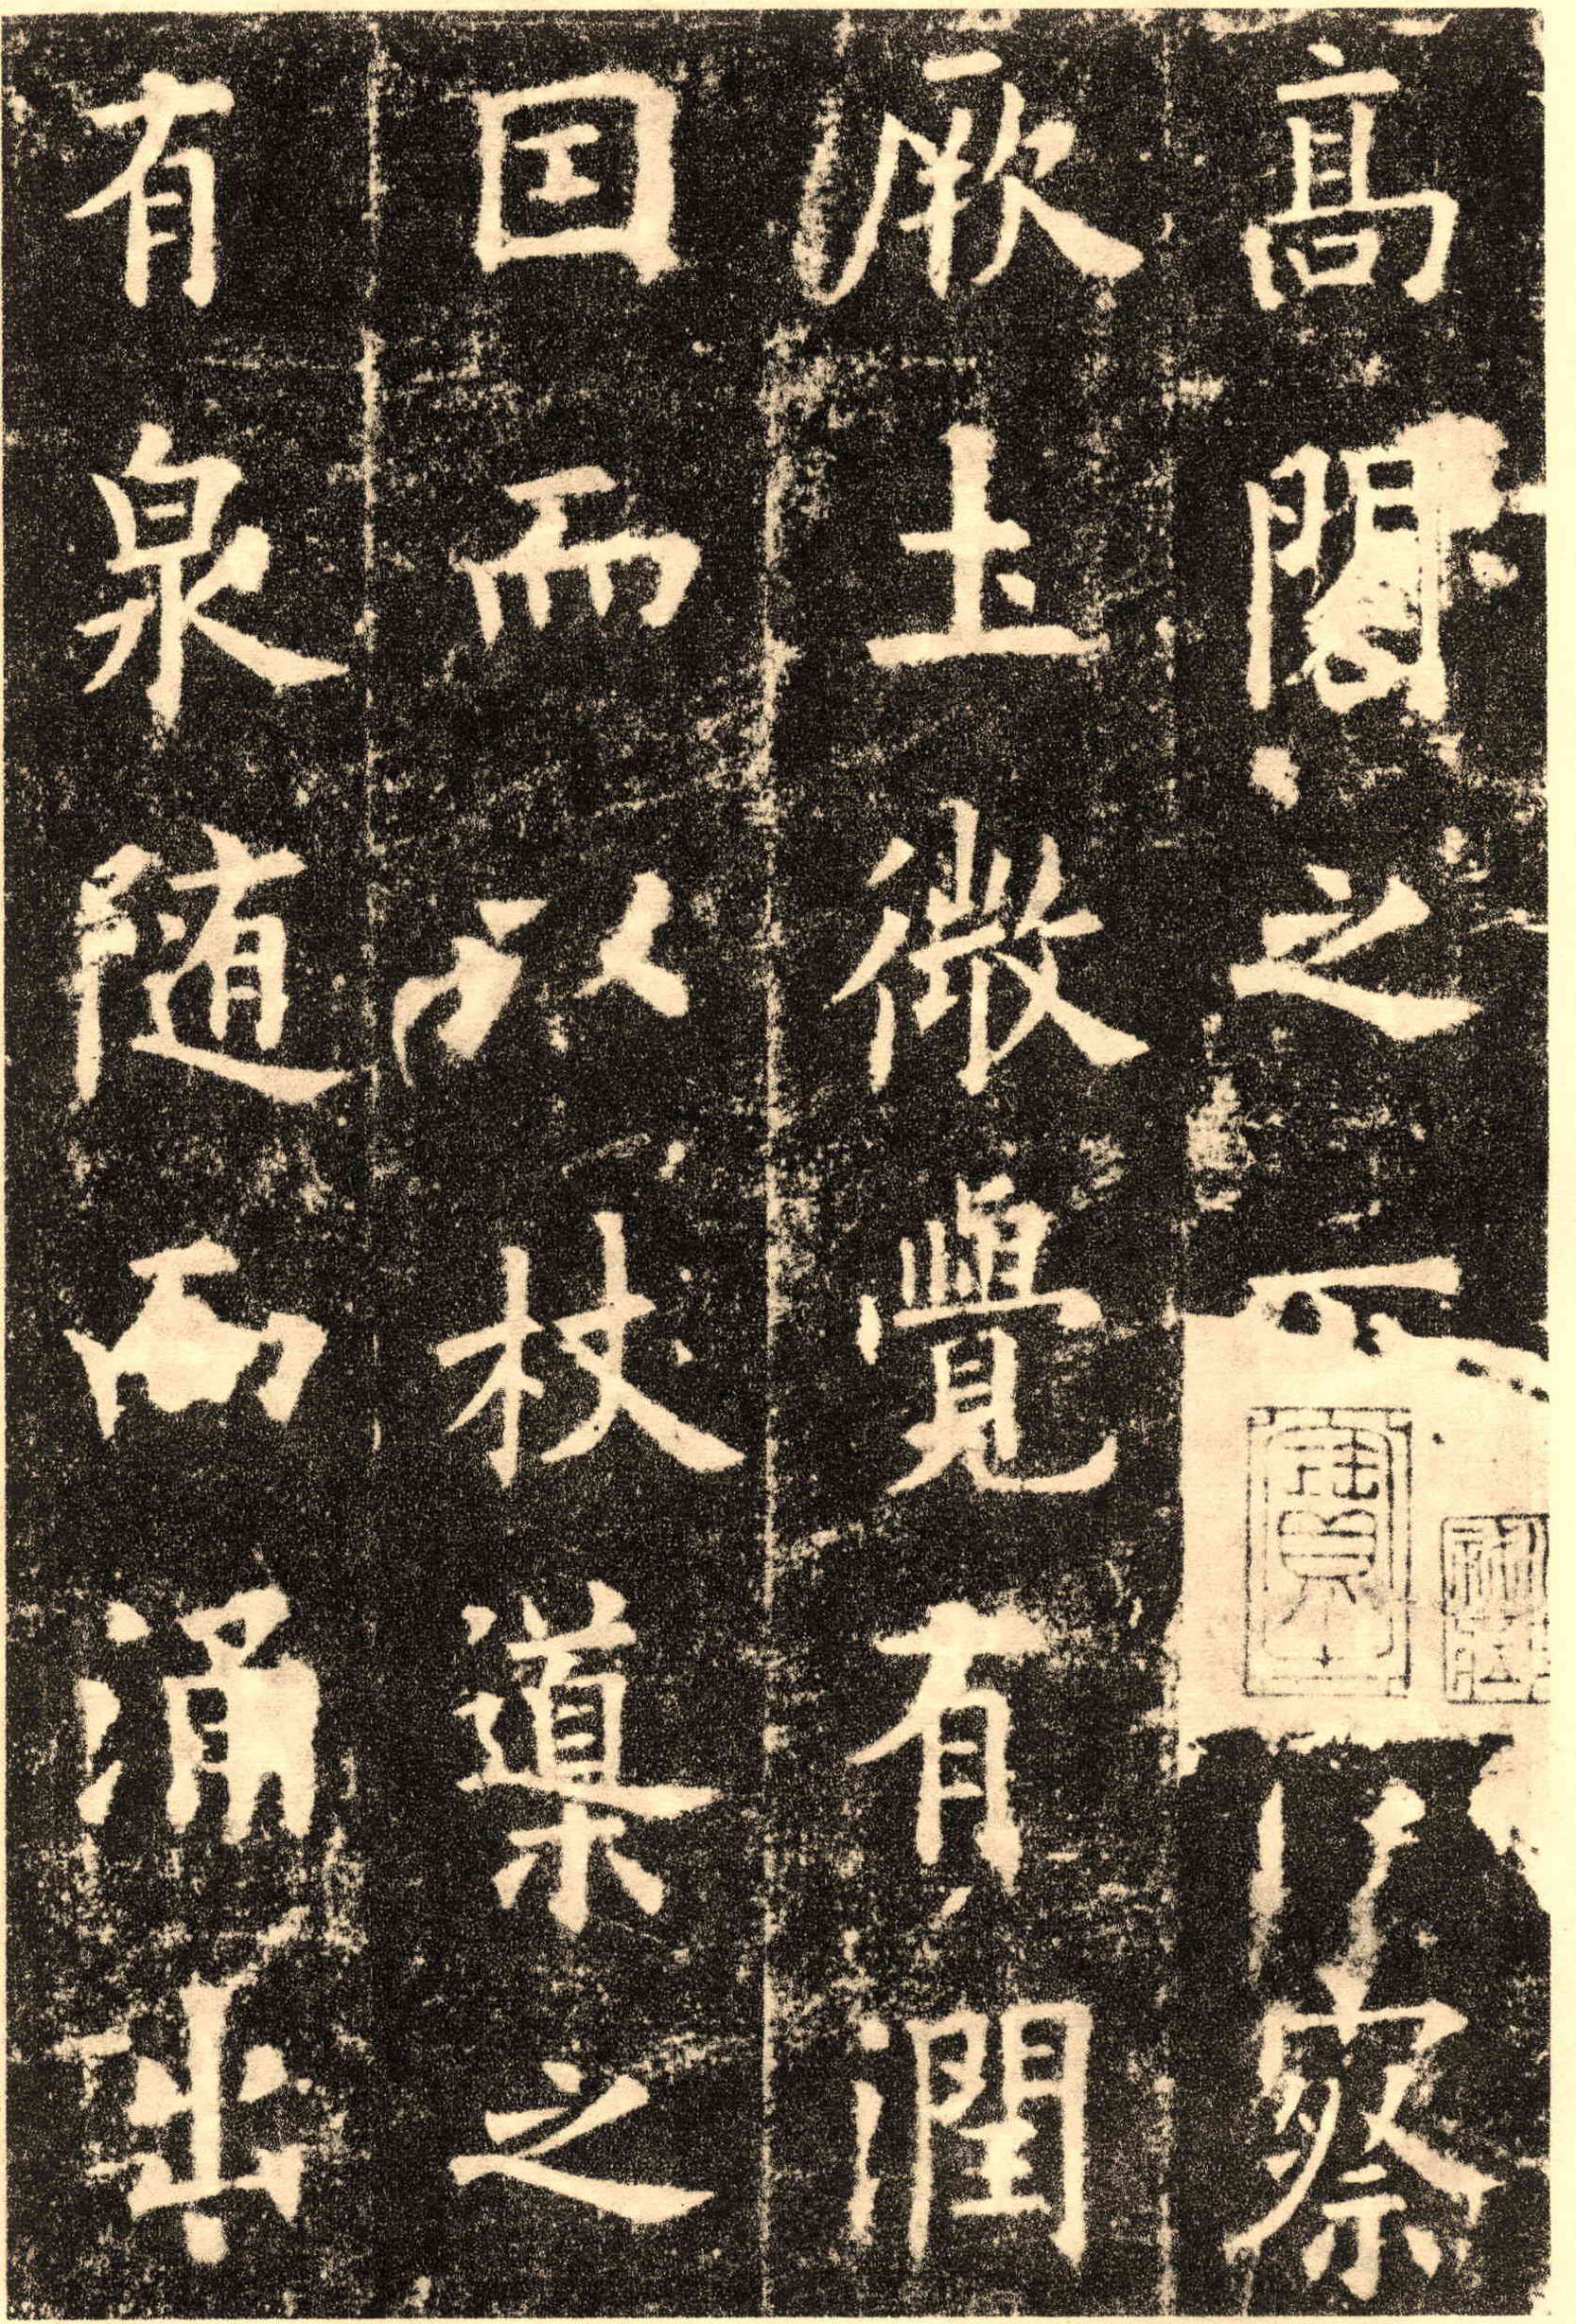 高閣之下俯察
厥土微覺有潤
因而以杖導之
有泉隨而涌出